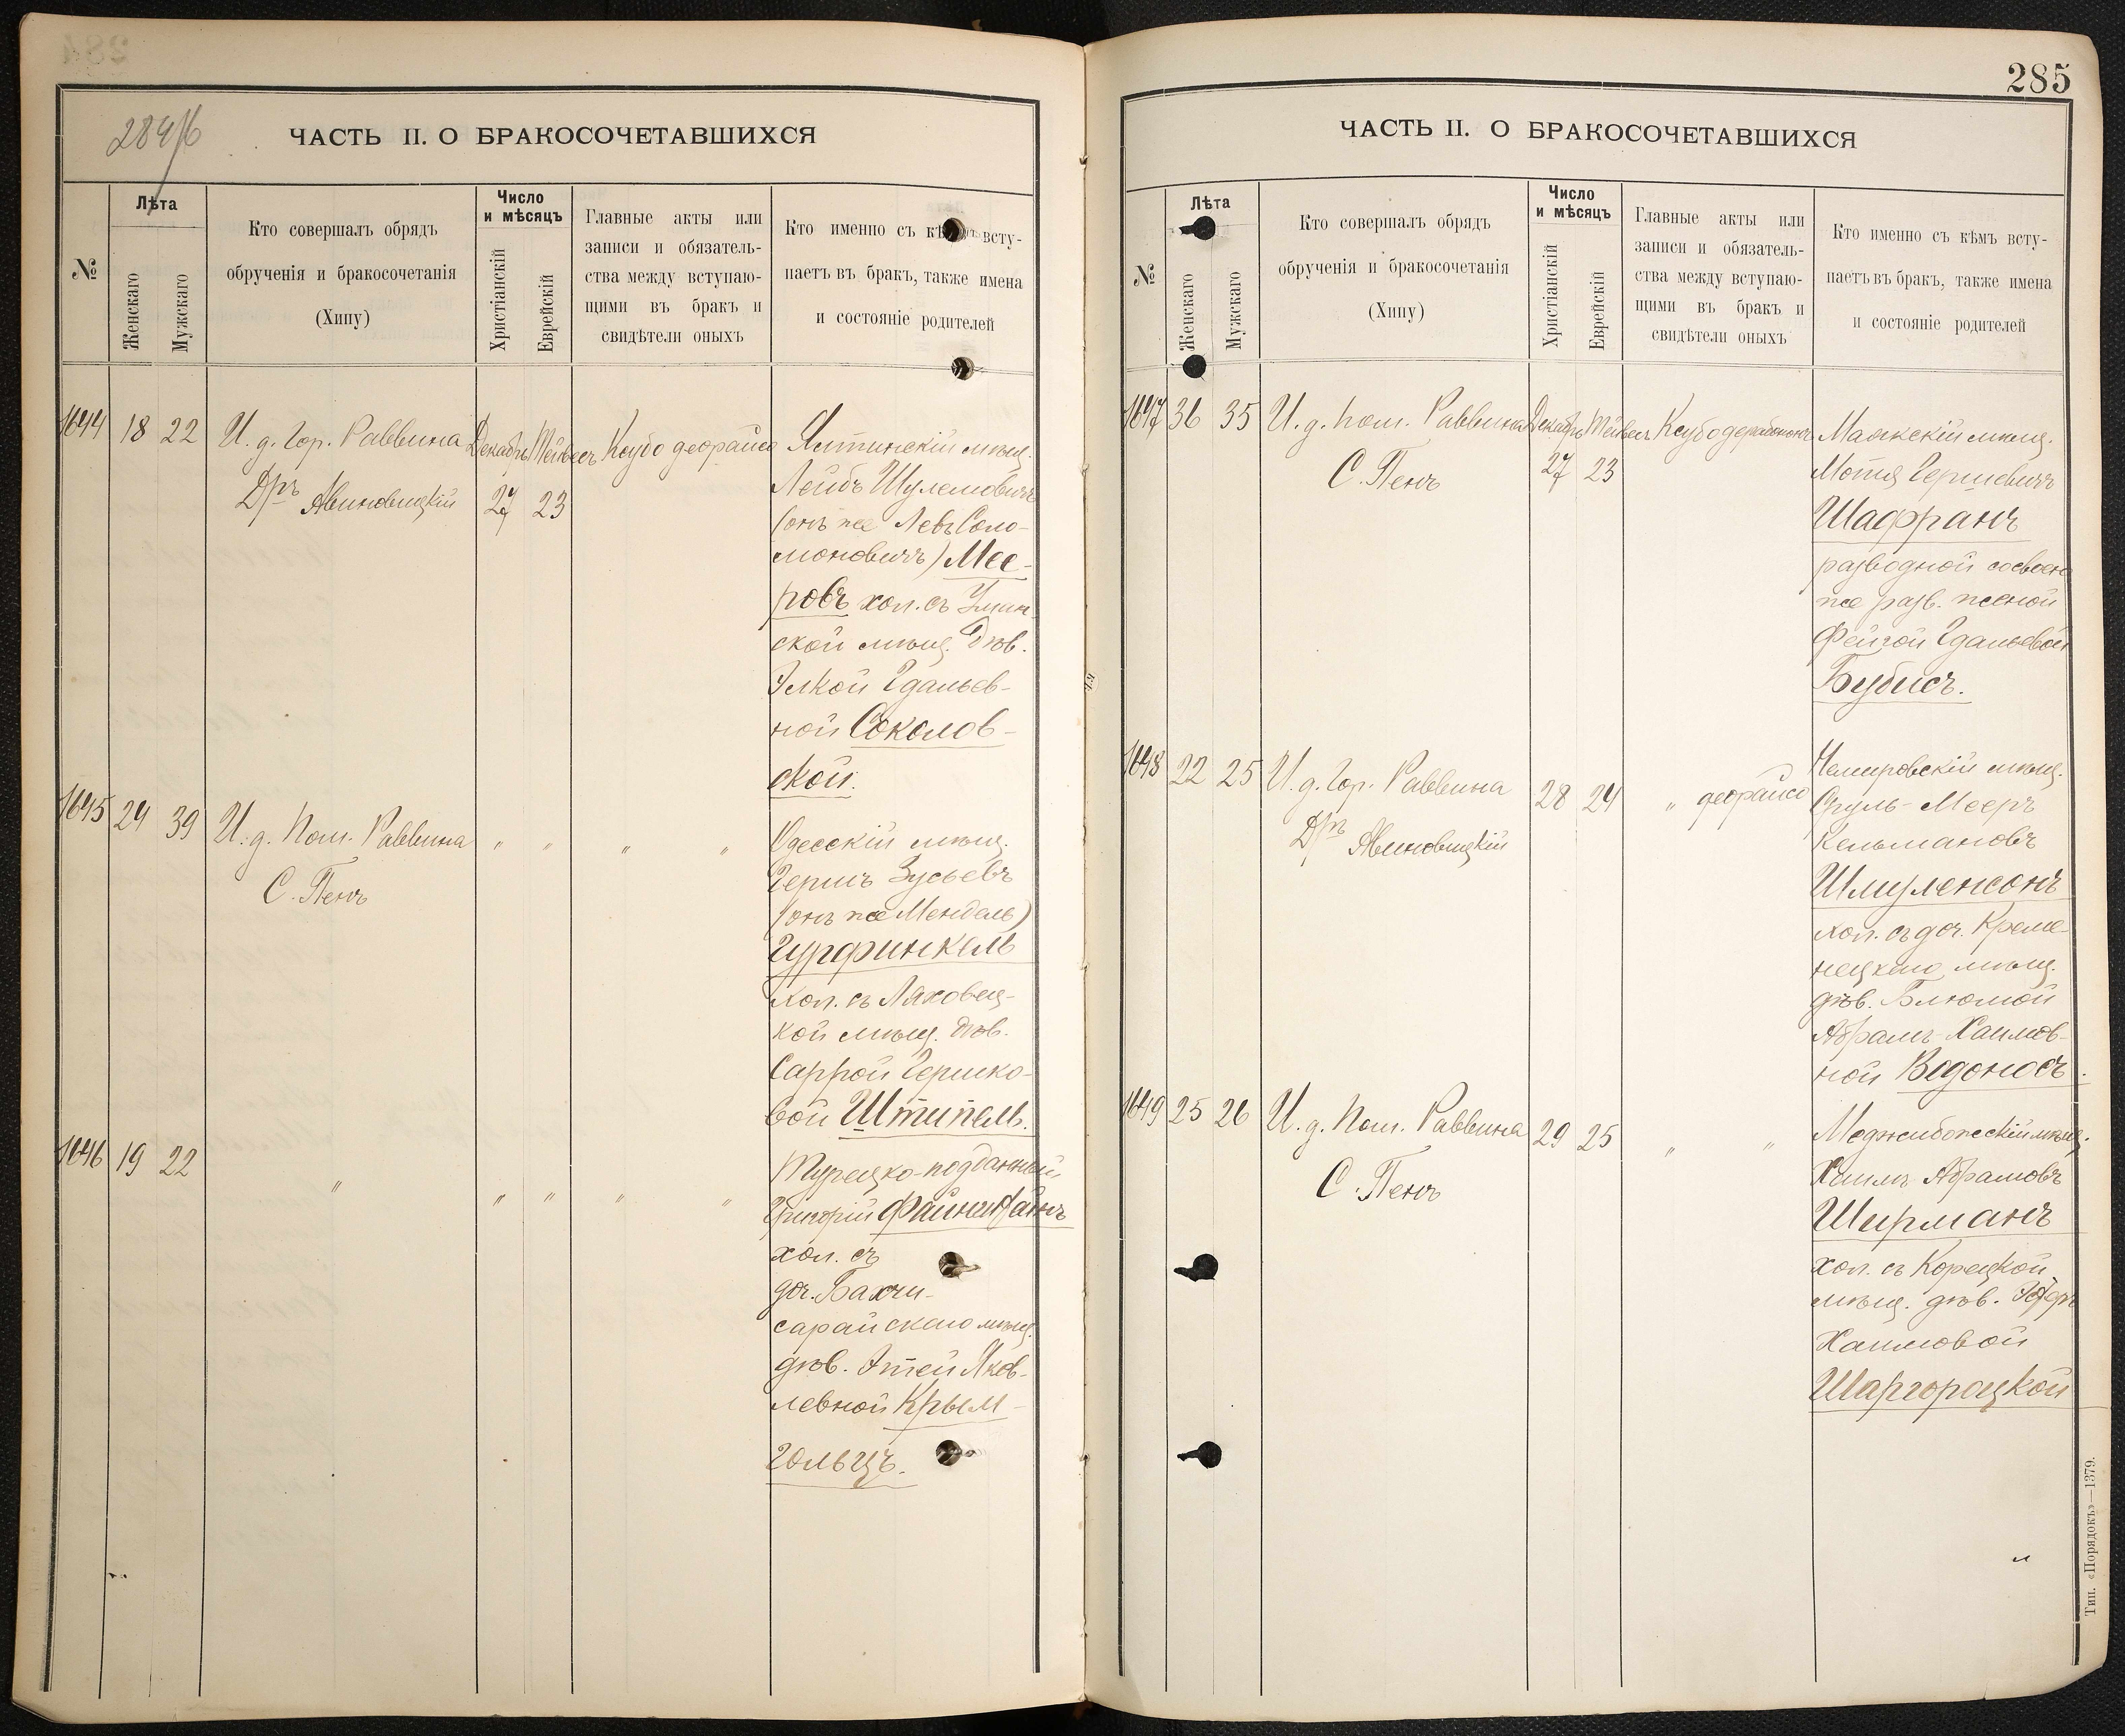 284/б
ЧАСТЬ II. О БРАКОСОЧЕТАВШИХСЯ
№
Лѣта
Женскаго
Мужскаго
Кто совершалъ обрядъ
обрученія и бракосочетанія
(Хипу)
Число
и мѣсяцъ
Христіанскій
Еврейскій
Главные акты или
записи и обязатель-
ства между вступаю-
щими въ бракъ и
свидѣтели оныхъ
Кто именно съ кѣмъ всту-
паетъ въ бракъ, также имена
и состояніе родителей
1644 18 22 И. д. Гор. Раввина Декабрь Тейвесъ Ксубо деорайсо
Дръ Авиновицкій 27 23
Ялтинскій мѣщ.
Лейбъ Шулемовичъ
(онъ же Левъ Соло-
моновичъ) Мее-
ровъ хол. съ Уман
ской мѣщ. дѣв.
Элкой Гдальев-
ной Соколов-
ской.
1645 24 39 И. д. Пом. Раввина " " " "
С. Пенъ
Одесскій мѣщ.
Гершъ Зусьевъ
(онъ же Мендель)
Гурфинкель
хол. съ Ляховец-
кой мѣщ. дѣв.
Саррой Гершко-
вой Штипель.
1646 19 22 " " " " "
Турецко-подданный
Григорій Файнштайнъ
хол. съ
доч. Бахчи-
сарайскаго мѣщ.
дѣв. Этей Яков-
левной Крым-
гольцъ.
285
ЧАСТЬ II. О БРАКОСОЧЕТАВШИХСЯ
№
Лѣта
Женскаго
Мужскаго
Кто совершалъ обрядъ
обрученія и бракосочетанія
(Хипу)
Число
и мѣсяцъ
Христіанскій
Еврейскій
Главные акты или
записи и обязатель-
ства между вступаю-
щими въ бракъ и
свидѣтели оныхъ
Кто именно съ кѣмъ всту-
паетъ въ бракъ, также имена
и состояніе родителей
1647 36 35 И. д. Пом. Раввина Декабрь Тейвесъ Ксубо дерабононъ
С. Пенъ 27 23
Маякскій мѣщ.
Мотя Гершевичъ
Шафранъ
разводной со своею
же разв. женой
Фейгой Гдальевой
Бубисъ.
1648 22 25 И. д. Гор. Раввина 28 24 " деорайсо
Дръ Авиновицкій
Немировскій мѣщ.
Сруль-Мееръ
Кельмановъ
Шмуленсонъ
хол. съ доч. Креме-
нецкаго мѣщ.
дѣв. Блюмой
Абрамъ-Хаимов-
ной Водоносъ.
1649 25 26 И. д. Пом. Раввина 29 25 " "
С. Пенъ
Меджибожскій мѣщ.
Хаимъ Абрамовъ
Ширманъ
хол. съ Корецкой
мѣщ. дѣв.
Хаимовой
Шаргороцкой
Тип. «Порядокъ»—1379.